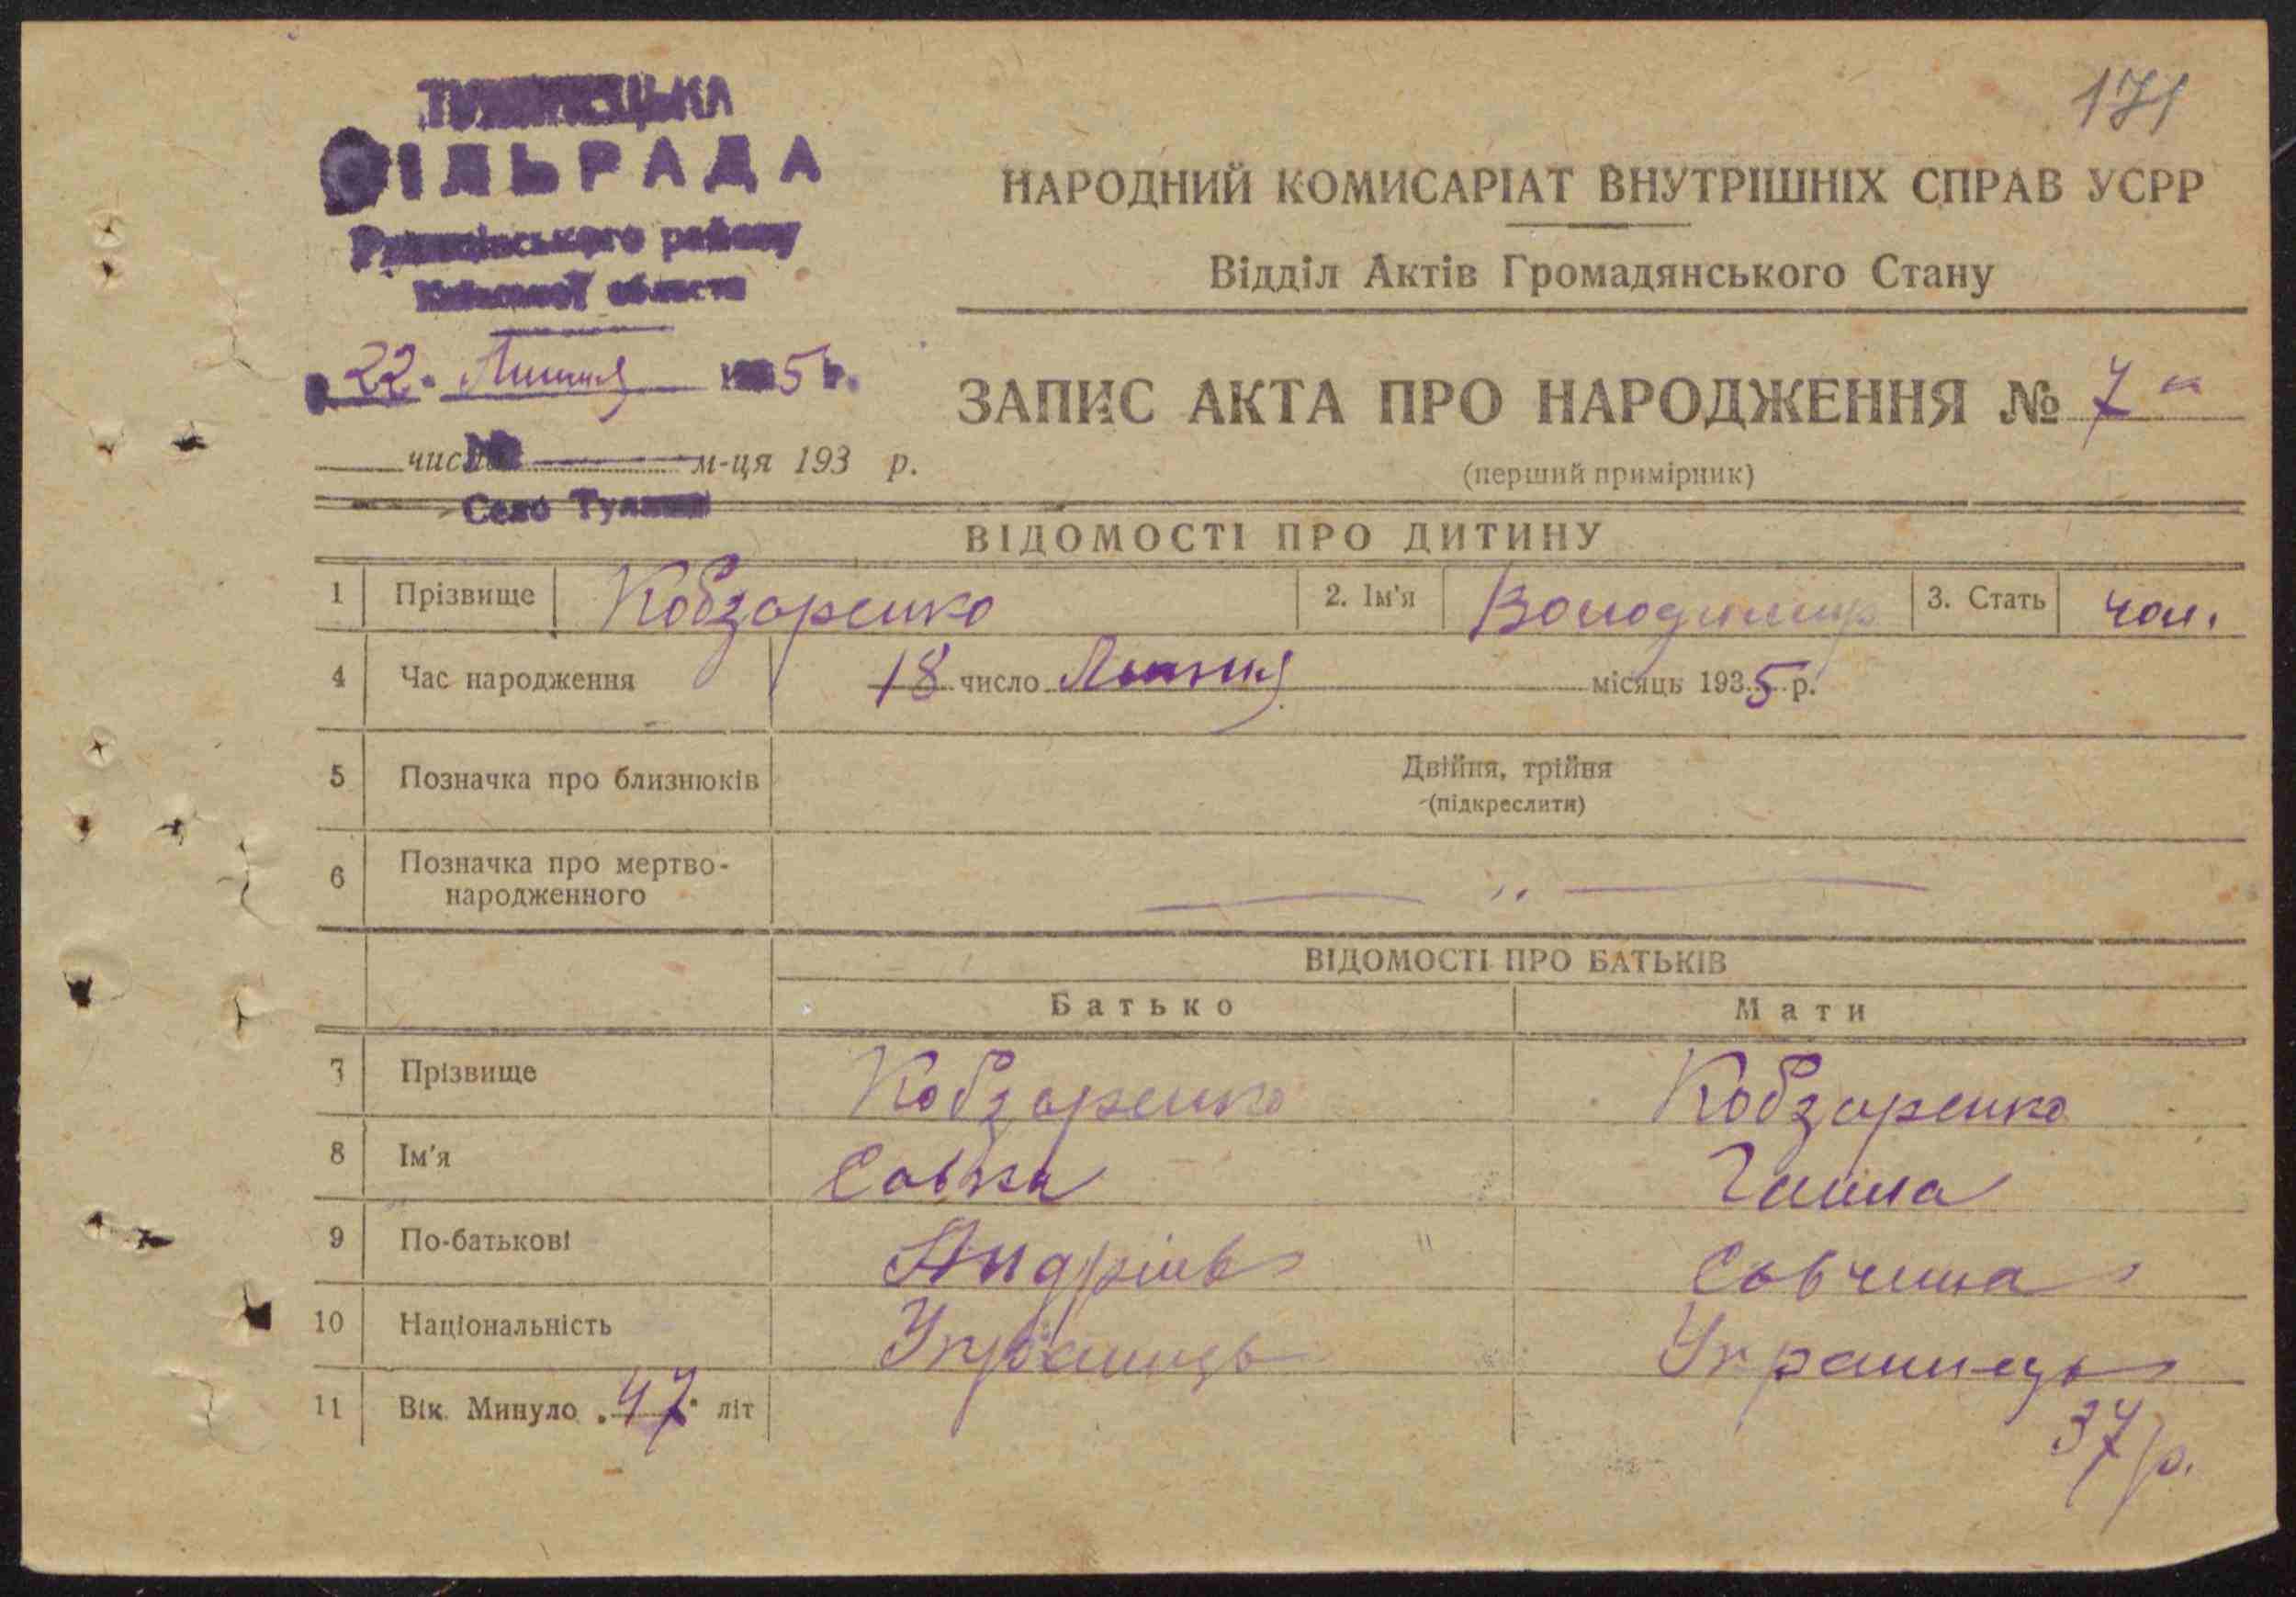 171
СІЛЬРАДА
району
області
22. Липня 1935 р.
НАРОДНИЙ КОМИСАРІАТ ВНУТРІШНІХ СПРАВ УСРР
Відділ Актів Громадянського Стану
ЗАПИС АКТА ПРО НАРОДЖЕННЯ № 7
число м-ця 193 р.
(перший примірник)
Село
ВІДОМОСТІ ПРО ДИТИНУ
1 Прізвище Кобзаренко 2. Ім'я Володимир 3. Стать чол.
4 Час народження 18 число Липня місяць 1935 р.
5 Позначка про близнюків Двійня, трійня
(підкреслити)
6 Позначка про мертво-
народженного
ВІДОМОСТІ ПРО БАТЬКІВ
Батько Мати
7 Прізвище Кобзаренко Кобзаренко
8 Ім'я Савка Ганна
9 По-батькові Андріив Савчина
10 Національність Украинець Украинець
11 Вік. Минуло 47 літ 37 р.